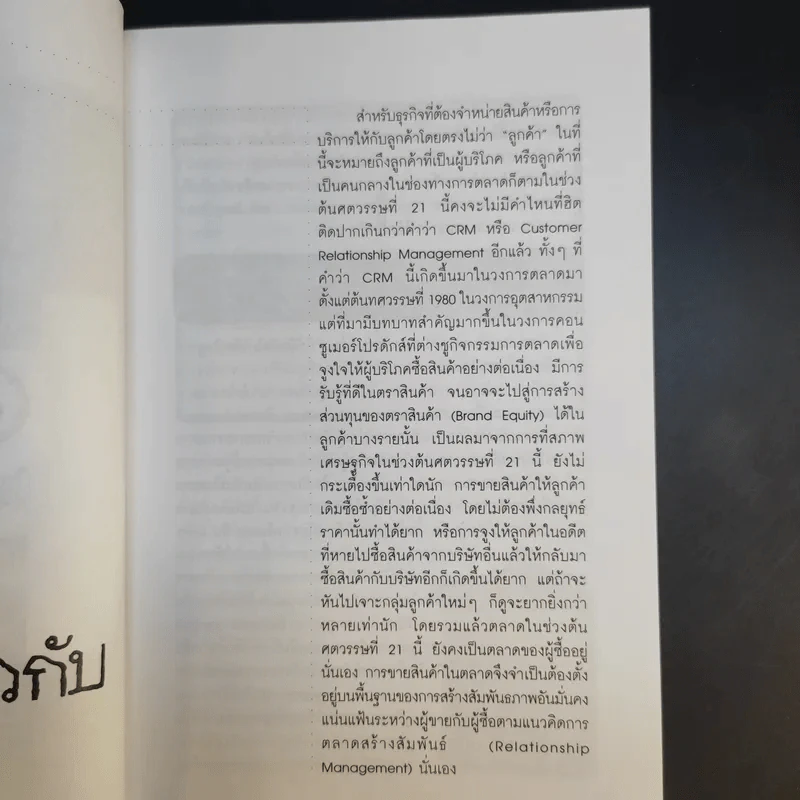 วกับ
สำหรับธุรกิจที่ต้องจำหน่ายสินค้าหรือการ
บริการให้กับลูกค้าโดยตรงไม่ว่า “ลูกค้า” ในที่
นี้จะหมายถึงลูกค้าที่เป็นผู้บริโภค หรือลูกค้าที่
เป็นคนกลางในช่องทางการตลาดก็ตามในช่วง
ต้นศตวรรษที่ 21 นี้คงจะไม่มีคำไหนที่ฮิต
ติดปากเกินกว่าคำว่า CRM หรือ Customer
Relationship Management อีกแล้ว ทั้งๆ ที่
คำว่า CRM นี้เกิดขึ้นมาในวงการตลาดมา
ตั้งแต่ต้นทศวรรษที่ 1980 ในวงการอุตสาหกรรม
แต่ที่มามีบทบาทสำคัญมากขึ้นในวงการคอน
ซูเมอร์โปรดักส์ที่ต่างชูกิจกรรมการตลาดเพื่อ
จูงใจให้ผู้บริโภคซื้อสินค้าอย่างต่อเนื่อง มีการ
รับรู้ที่ดีในตราสินค้า จนอาจจะไปสู่การสร้าง
ส่วนทุนของตราสินค้า (Brand Equity) ได้ใน
ลูกค้าบางรายนั้น เป็นผลมาจากการที่สภาพ
เศรษฐกิจในช่วงต้นศตวรรษที่ 21 นี้ ยังไม่
กระเตื้องขึ้นเท่าใดนัก การขายสินค้าให้ลูกค้า
เดิมซื้อซ้ำอย่างต่อเนื่อง โดยไม่ต้องพึ่งกลยุทธ์
ราคานั้นทำได้ยาก หรือการจูงให้ลูกค้าในอดีต
ที่หายไปซื้อสินค้าจากบริษัทอื่นแล้วให้กลับมา
ซื้อสินค้ากับบริษัทอีกก็เกิดขึ้นได้ยาก แต่ถ้าจะ
หันไปเจาะกลุ่มลูกค้าใหม่ๆ ก็ดูจะยากยิ่งกว่า
หลายเท่านัก โดยรวมแล้วตลาดในช่วงต้น
ศตวรรษที่ 21 นี้ ยังคงเป็นตลาดของผู้ซื้ออยู่
นั่นเอง การขายสินค้าในตลาดจึงจำเป็นต้องตั้ง
อยู่บนพื้นฐานของการสร้างสัมพันธภาพอันมั่นคง
แน่นแฟ้นระหว่างผู้ขายกับผู้ซื้อตามแนวคิดการ
ตลาดสร้างสัมพันธ์ (Relationship
Management) นั่นเอง